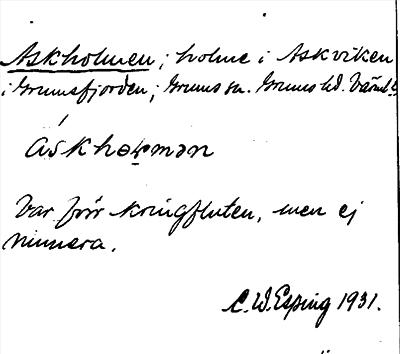 Askholmen; holme i Askviken
i Grumsfjorden; Grums sn. Grums hd. Värml.
áskhəɽmən
Var förr kringfluten, men ej
numera.
C. W. Esping 1931.